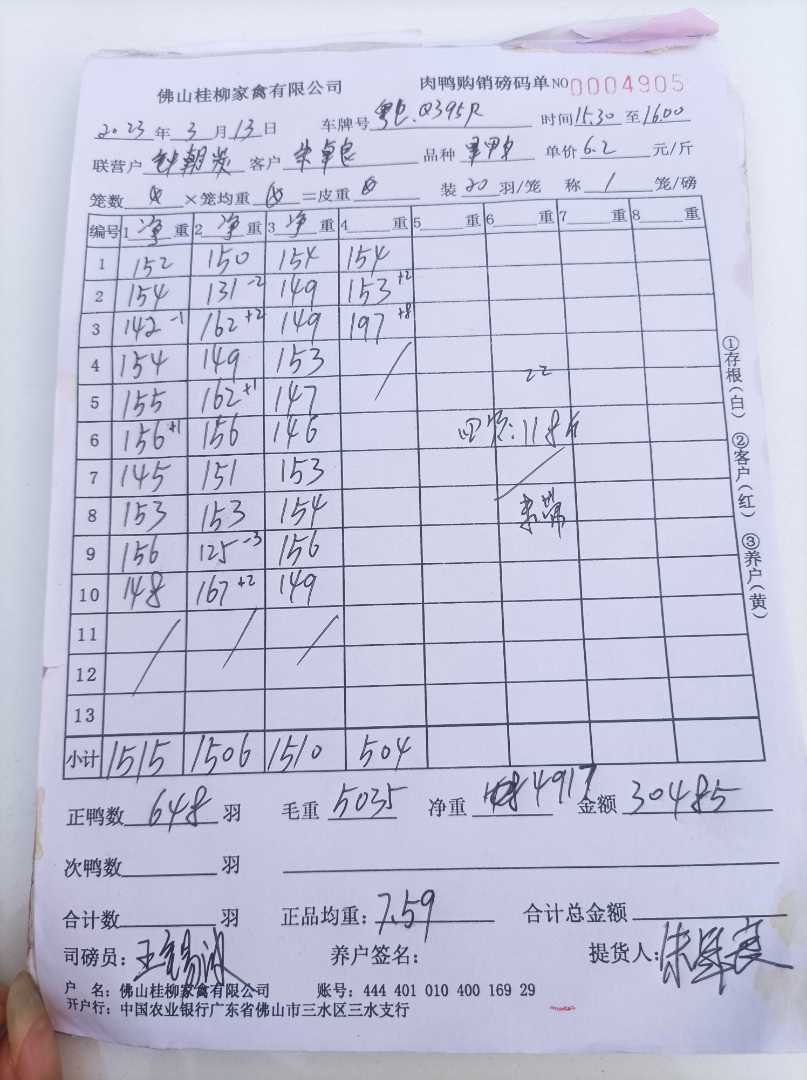 佛山桂柳家禽有限公司 肉鸭购销磅码单 NO 0004905
2023年3月13日 车牌号 Q395R 时间15.30至16.00
联营户 客户 品种 单价6.2元/斤
笼数 0 ×笼均重 0 =皮重 0 装20羽/笼 称1笼/磅
编号 1净重 2净重 3净重 4重 5重 6重 7重 8重
1 152 150 154 154
2 154 131-2 149 153+2
3 142-1 162+2 149 197+8
4 154 149 153
5 155 162+1 147
6 156+1 156 146
7 145 151 153
8 153 153 154
9 156 125-3 156
10 148 167+2 149
11
12
13
22
:118斤
小计 1515 1506 1510 504
①存根(白) ②客户(红) ③养户(黄)
正鸭数648羽 毛重5035 净重4917 金额30485
次鸭数 羽
合计数 羽 正品均重:7.59 合计总金额
司磅员: 养户签名: 提货人:
户 名:佛山桂柳家禽有限公司 账号:444 401 010 400 169 29
开户行:中国农业银行广东省佛山市三水区三水支行